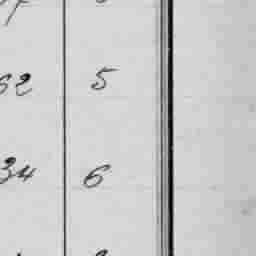 62 5
34 6